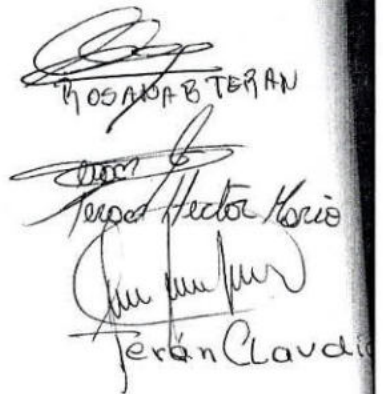 ROSANA B TERAN
Teran
Teran Hector Mario
Terán Claudi